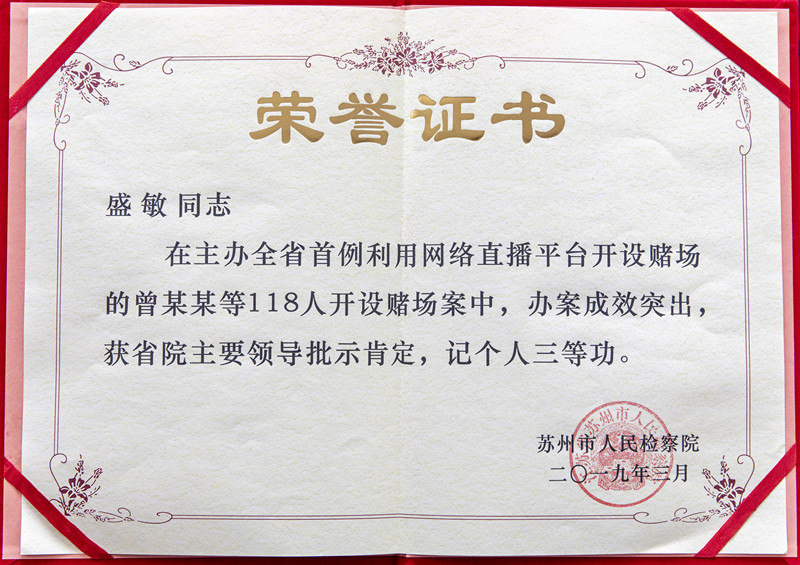 荣誉证书
盛敏 同志
在主办全省首例利用网络直播平台开设赌场
的曾某某等118人开设赌场案中，办案成效突出，
获省院主要领导批示肯定，记个人三等功。
苏州市人民检察院
二〇一九年三月